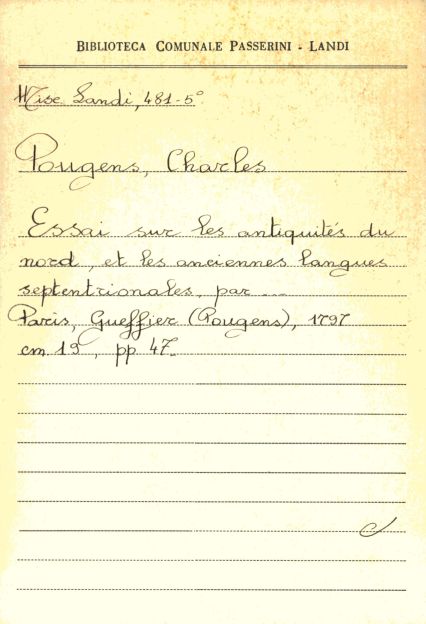 BIBLIOTECA COMUNALE PASSERINI - LANDI
Misc. Landi, 481-5°
Pougens, Charles
Essai sur les antiquités du
nord, et les anciennes langues
septentrionales, par ...
Paris, Gueffier (Pougens), 1797
cm 19, pp. 47.